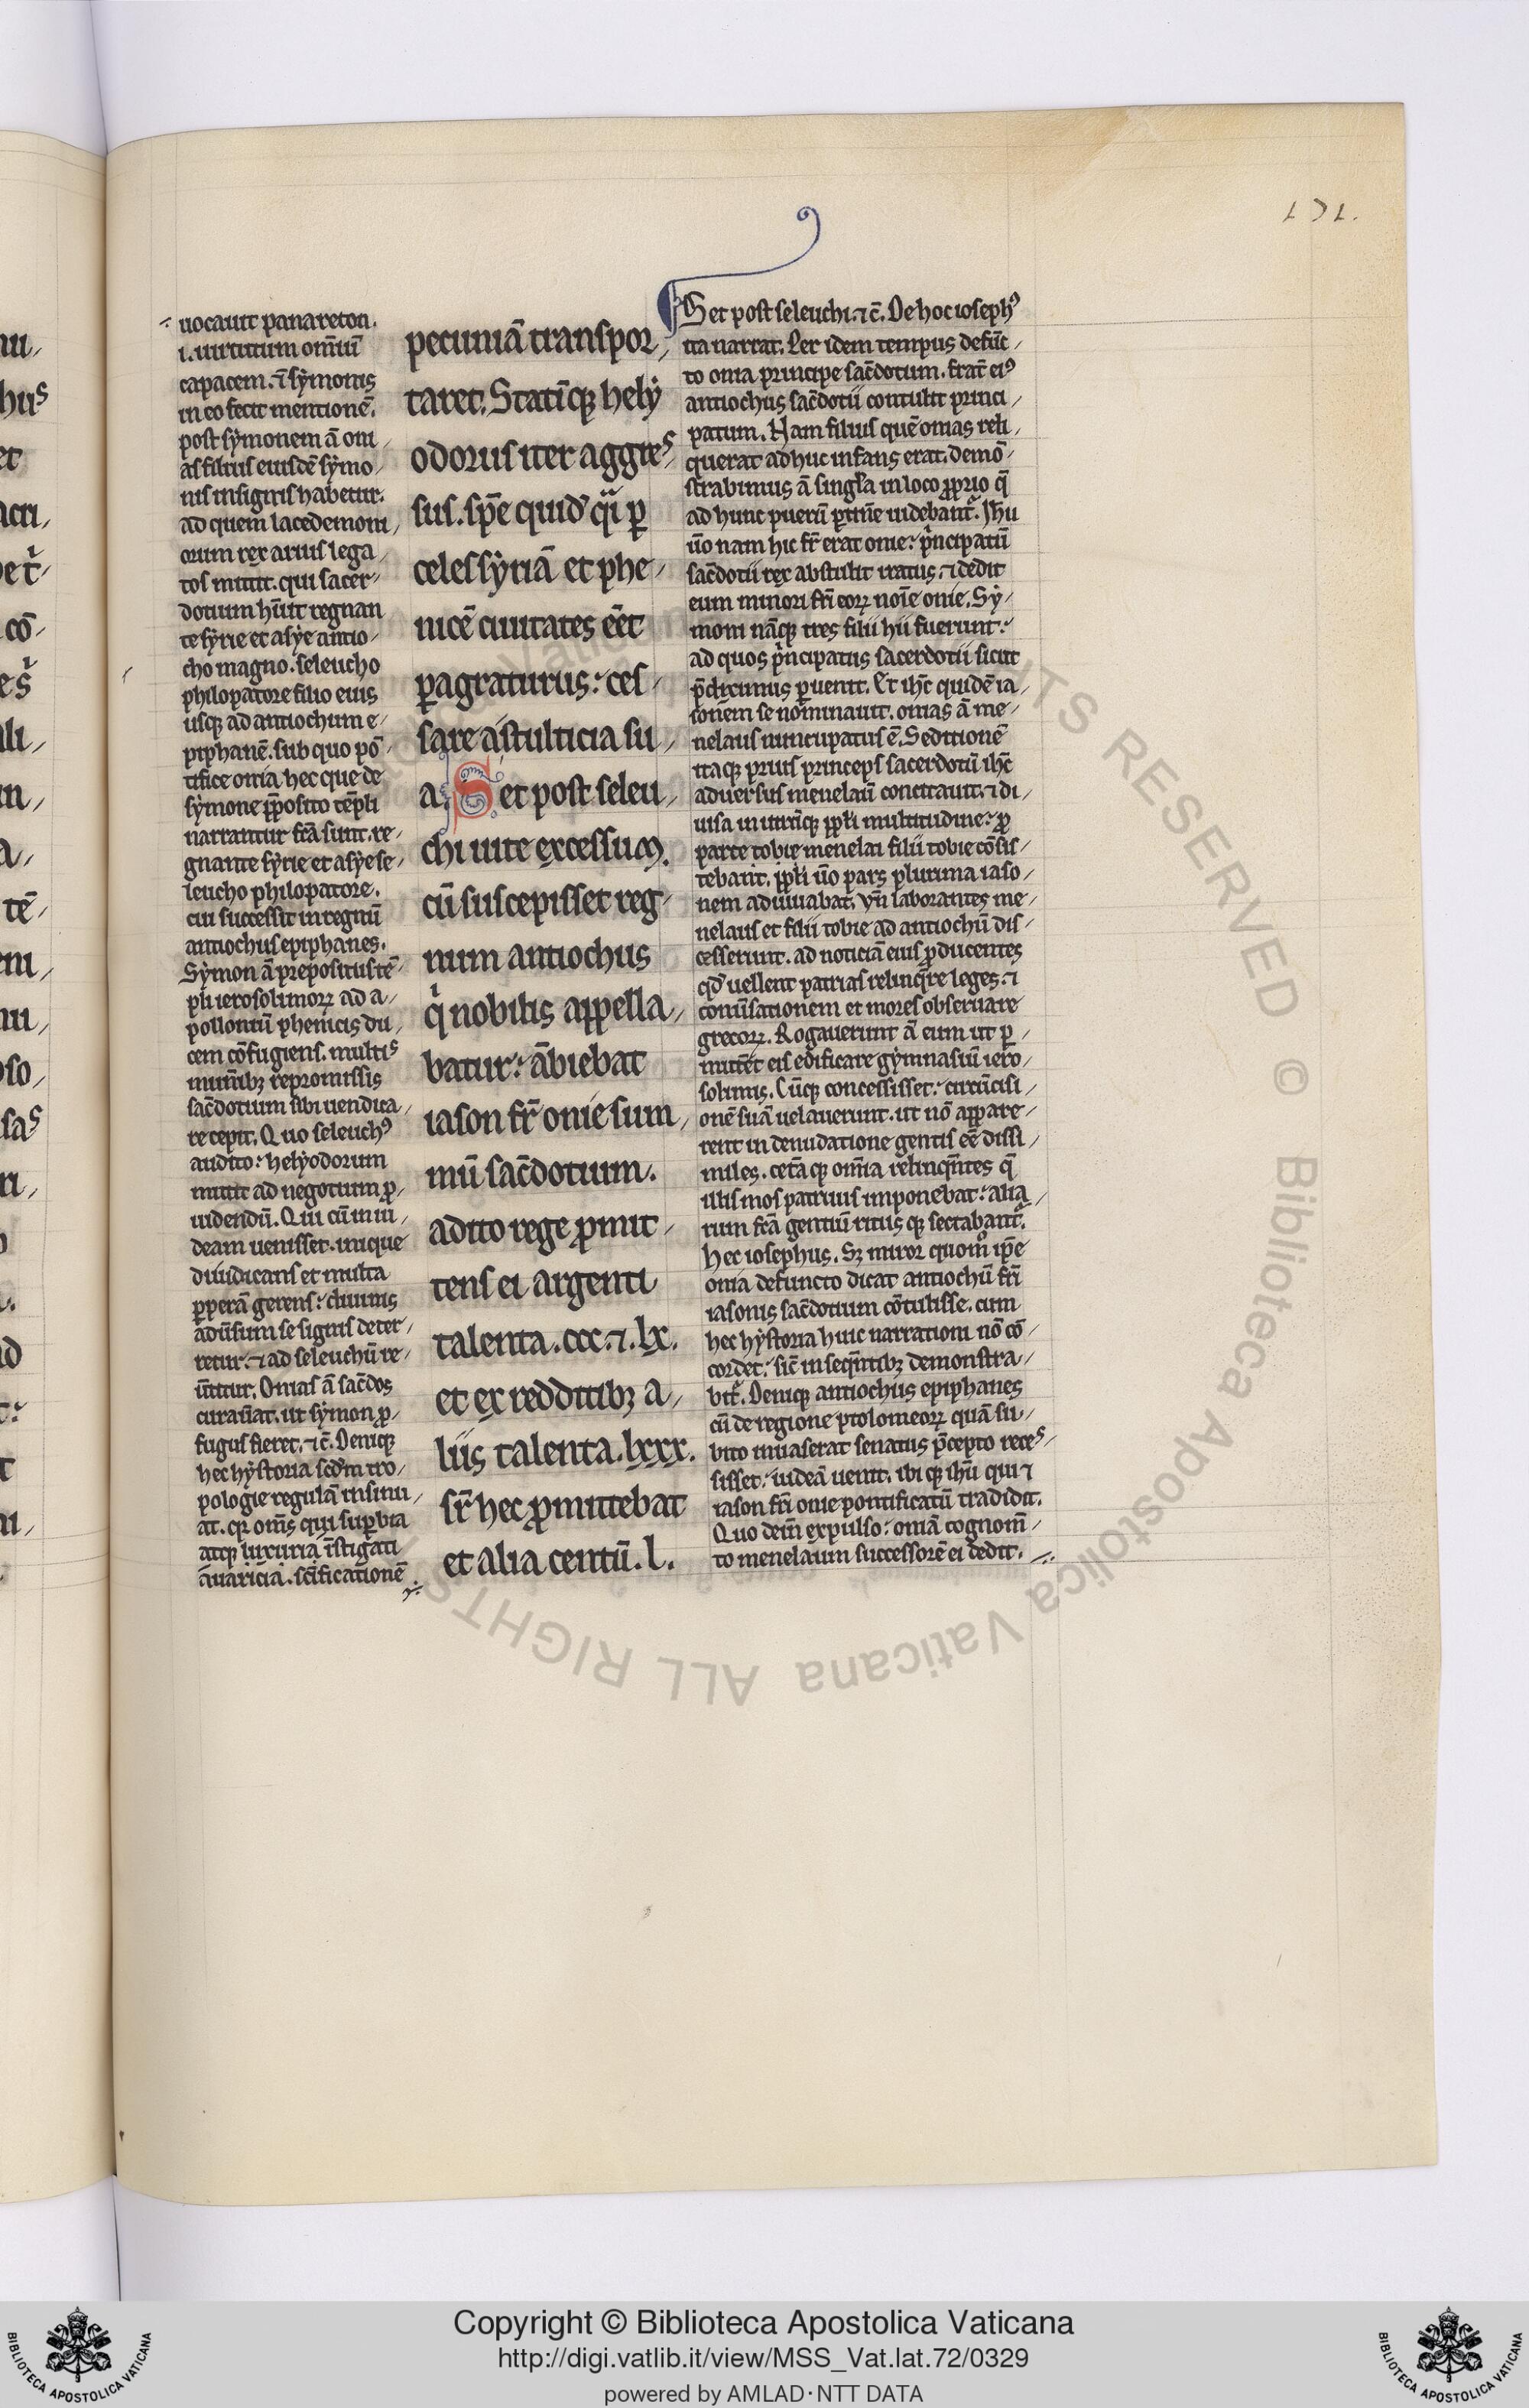 171.
uocauit panareton.
.i. uirtutum om̄iū
capacem. ⁊ symonis
in eo fecit mentionē.
post symonem ā oni
as filius eiusdē symo
nis insignis habetur.
ad quem lacedemoni
orum rex arius lega
tos mittit. qui sacer
dotium hūit regnan
te syrie et asye antio
cho magno. seleucho
philopatore filio eius
usq; ad antiochum e
piphanē. sub quo pō
tifice onia. hec que de
symone p̄posito tēpli
narrantur fc̄a sunt. re
gnante syrie et asye se
leucho philopatore.
cui successit in regnū
antiochus epiphanes.
Symon ā prepositus tē
pli ierosolimoꝝ ad a
polloniū phenicis du
cem cōfugiens. multis
munīb; repromissis
sac̄dotium sibi uendica
re cepit. Quo seleuchꝰ
audito: helyodorum
mittit ad negotium ꝓ
uidendū. Qui cū in iu
deam uenisset. inique
diiudicans et multa
ꝑperā gerens: diuinis
adūsum se signis deter
retur. ⁊ ad seleuchū re
ūtitur. Onias ā sac̄dos
curaūat. ut symon ꝓ
fugus fieret. ⁊c̄. Deniq;
hec hystoria scd̄m tro
pologie regulā insinu
at. qꝛ om̄s qui suꝑbia
atq; luxuria īstigati
auaricia. sc̄ificationē
pecuniā transpor
taret. Statīq; hely
odorus iter aggres
sus. sp̄e quid̄ qͥi ꝑ
celessyriā et phe
nicē ciuitates eēt
ꝑagraturus: ces
sare a stulticia su
a. Set post seleu
chi uite excessum.
cū suscepisset reg
num antiochus
qͥ nobilis appella
batur: ābiebat
iason fr̄ onie sum
mū sac̄dotium.
adito rege ꝓmit
tens ei argenti
talenta. ccc. ⁊. lx.
et ex redditib; a
liis talenta. lxxx.
sr̄ hec ꝓmittebat
et alia centū. l.
Set post seleuchi. ⁊c̄. De hoc iosephꝰ
ita narrat. Per idem tempus defūc
to onia principe sac̄dotum. frat̄ eiꝰ
antiochus sac̄dotii contulit princi
patum. Nam filius quē onias reli
querat adhuc infans erat. demō
strabimus ā singl̄a in loco ꝓprio q̄
ad hunc puerū ꝑtin̄e uidebant᷑. Ihū
ūo nam hic fr̄ erat onie: pͥncipatū
sac̄dotii rex abstulit iratus. ⁊ dedit
eum minori fr̄i eoꝝ noīe onie. Sy
moni nāq; tres filii hii fuerunt:
ad quos pͥncipatus sacerdotii sicut
p̄diximus ꝑuenit. Et ihc̄ quidē ia
sonem se nominauit. onias ā me
nelaus nuncupatus ē. Seditionē
itaq; prius princeps sacerdotū ihc̄
aduersus menelaū concitauit. ⁊ di
uisa in utrūq; ppl̄i multitudine: ꝓ
parte tobie menelai filii tobie cōsis
tebant. ppl̄i ūo pars plurima iaso
nem adiuuabat. vn̄ laborantes me
nelaus et filii tobie ad antiochū dis
cesserunt. ad noticiā eius ꝓducentes
qd̄ uellent patrias relinqͥre leges. ⁊
conūsationem et mores obseruare
grecoꝝ. Rogauerunt ā eum ut ꝑ
mitt̄et eis edificare gymnasiū iero
solimis. Cūq; concessisset: circūcisi
onē suā uelauerunt. ut nō appare
rent in denudatione gentis eē dissi
miles. cet̄aq; om̄ia relinqn̄tes q̄
illis mos patrius imponebat: alia
rum fc̄a gentiū ritusq; sectabant᷑.
Hec iosephus. Sꝫ miror quom̊ ip̄e
onia defuncto dicat antiochū fr̄i
iasonis sac̄dotium cōtulisse. cum
hec hystoria huic narrationi nō cō
cordet: sic̄ in seqn̄tib; demonstra
bit᷑. Deniq; antiochus epiphanes
cū de regione ptolomeoꝝ quā su
bito inuaserat senatus p̄cepto reces
sisset: iudeā uenit. ibiq; ihū qui ⁊
iason fr̄i onie pontificatū tradidit.
Quo dein̄ expulso: oniā cognom̄
to menelaum successorē ei dedit.
ALL RIGHTS RESERVED © Biblioteca Apostolica Vaticana
Copyright © Biblioteca Apostolica Vaticana
http://digi.vatlib.it/view/MSS_Vat.lat.72/0329
powered by AMLAD·NTT DATA
BIBLIOTECA APOSTOLICA VATICANA
BIBLIOTECA APOSTOLICA VATICANA